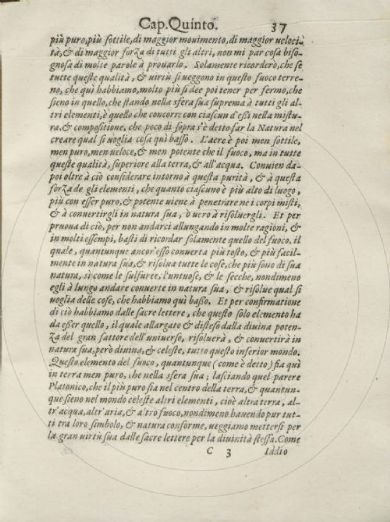 Cap. Quinto. 37
più puro, più sottile, di maggior movimento, di maggior veloci-
tà, & di maggior forza di tutti gli altri, non mi par cosa biso-
gnosa di molte parole à provarlo. Solamente ricorderò, che se
tutte queste qualità, & virtù si veggono in questo fuoco terre-
no, che quì habbiamo, molto più si dee poi tener per fermo, che
sieno in quello, che stando nella sfera sua suprema à tutti gli al-
tri elementi, è quello che concorre con ciascun d'essi nella mistu-
ra, & compositione, che poco di sopra s'è detto far la Natura nel
creare qual si voglia cosa quì basso. L'aere è poi men sottile,
men puro, men veloce, & men potente che il fuoco, ma in tutte
queste qualità, superiore alla terra, & all'acqua. Convien da-
poi oltre à ciò considerare intorno à questa purità, & à questa
forza de gli elementi, che quanto ciascuno è più alto di luogo,
più con esser puro, & potente viene à penetrare ne i corpi misti,
& à convertirgli in natura sua, ò vero à risolvergli. Et per
pruova di ciò, per non andarci allungando in molte ragioni, &
in molti essempi, basti di ricordar solamente quello del fuoco, il
quale, quantunque ancor'esso converta più tosto, & più facil-
mente in natura sua, & risolva tutte le cose, che più sono di sua
natura, sì come le sulfuree, l'untuose, & le secche, nondimeno
egli à lungo andare converte in natura sua, & risolve qual si
voglia delle cose, che habbiamo quì basso. Et per confirmatione
di ciò habbiamo dalle sacre lettere, che questo solo elemento ha
da esser quello, il quale allargato & disteso dalla divina poten-
za del gran fattore dell'universo, risolverà, & convertirà in
natura sua, però divina, & celeste, tutto questo inferior mondo.
Questo elemento del fuoco, quantunque (come è detto) sia quì
in terra men puro, che nella sfera sua; lasciando quel parere
Platonico, che il più puro sia nel centro della terra, & quantun-
que sieno nel mondo celeste altri elementi, cioè altra terra, al-
tr'acqua, altr'aria, & altro fuoco, nondimeno havendo pur tut-
ti tra loro simbolo, & natura conforme, veggiamo mettersi per
la gran virtù sua dalle sacre lettere per la divinità stessa. Come
C 3 Iddio